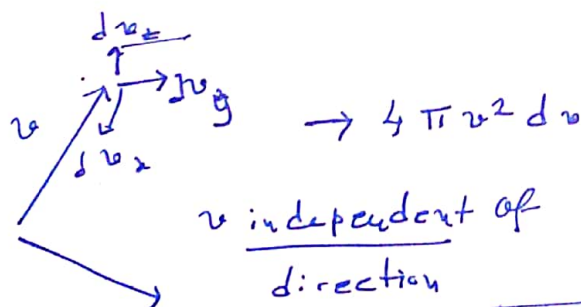 dv_z
v
dv_y
dv_x
→ 4 π v² dv
v independent of
direction